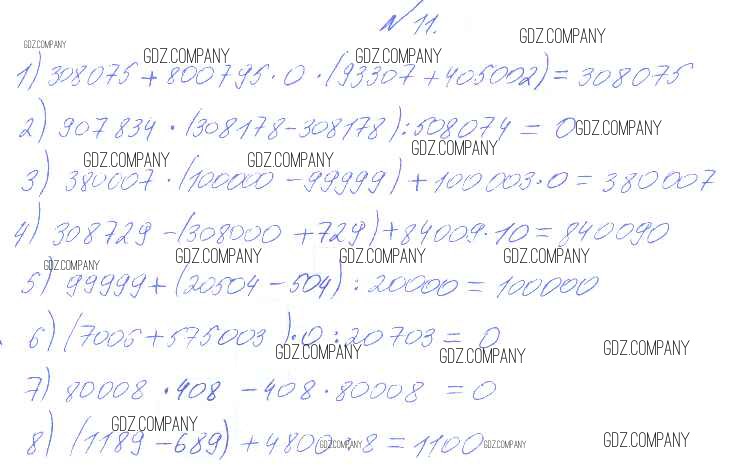 № 11.
GDZ.COMPANY GDZ.COMPANY
GDZ.COMPANY GDZ.COMPANY
1) 308075 + 800795 · 0 · (93307 + 405002) = 308075
2) 907834 · (308178 - 308178) : 508074 = 0 GDZ.COMPANY
GDZ.COMPANY GDZ.COMPANY GDZ.COMPANY
3) 380007 · (100000 - 99999) + 100003 · 0 = 380007
4) 308729 - (308000 + 729) + 84009 · 10 = 840090
GDZ.COMPANY GDZ.COMPANY GDZ.COMPANY GDZ.COMPANY
5) 99999 + (20504 - 504) : 20000 = 100000
6) (7006 + 575003) · 0 : 20703 = 0
GDZ.COMPANY GDZ.COMPANY GDZ.COMPANY
7) 80008 · 408 - 408 · 80008 = 0
GDZ.COMPANY
8) (1189 - 689) + 4800 : 8 = 1100
GDZ.COMPANY GDZ.COMPANY GDZ.COMPANY